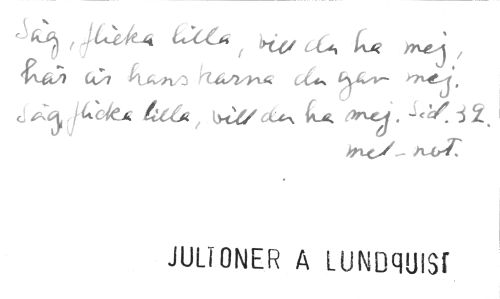 Säg, flicka lilla, vill du ha mej,
här är hanskarna du gav mej.
Säg, flicka lilla, vill du ha mej. Sid. 39.
mel-not.
JULTONER A LUNDQUIST